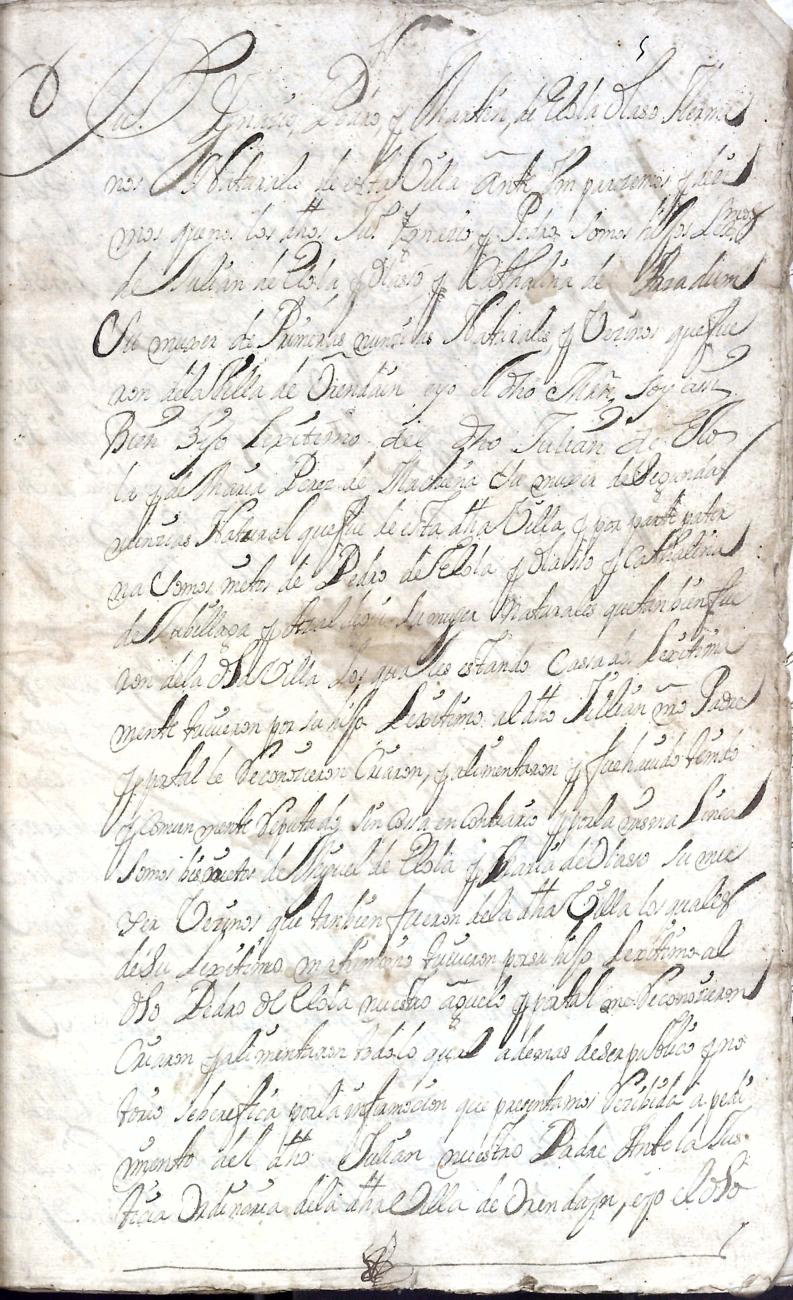 Ju.º Ygnacio, Pedro y Martin, de Elola Olaso Herma
nos Naturales de esta Villa Ante Vm parezemos y dezi
mos que nos los dhos Juº Ygnacio y Pedro somos hijos Lexmos
de Julian de Elola y Olaso y Cathalina de
Su muxer de Primeras nunzias Naturales y Vezinos que fue
ron de la Villa de Orendain e yo el dho Mrn soy assi
Bien Hijo Lexitimo del dho Julian de Elo
la y de Maria Perez de Machain Su muxer de Segundas
nunzias Natural que fue de esta dha Villa y por parte pater
na Somos nietos de Pedro de Elola y Olasso y Cathalina
de y Su muger Naturales que tanbien fue
ron de la dha Villa Los quales estando Cassados Lexitima
mente tuuieron por su hijo Lexitimo al dho Julian nro Padre
y por tal le Reconozieron Criaron, y alimentaron y fue hauido tenido
y Comun mente Reputado, Sin Cosa en Contrario y por la misma Linea
Somos bisnietos de Miguel de Elola y Maria de Olasso Su mu
xer Vezinos que tanbien fueron de la dha Villa los quales
de Su Lexitimo matrimonio tuuieron por su hijo Lexitimo al
dho Pedro de Elola nuestro Aguelo y por tal Reconozieron
Criaron y alimentaron todo lo qual ademas de ser publico y no
torio se berefica por la informacion que presentamos Rezibida a pedi
mento del dho Julian nuestro Padre Ante la Jus
ticia Ordinaria de la dha Villa de Orendayn, e yo el dho